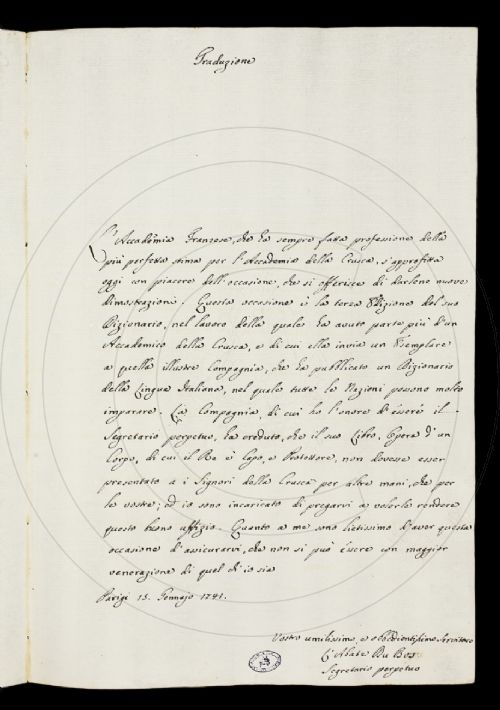 Traduzione
L'Accademia Franzese, che ha sempre fatta professione della
più perfetta stima per l'Accademia della Crusca, s'approfitta
oggi con piacere dell'occasione, che si offerisce di darlene nuove
dimostrazioni. Questa occasione è la terza Edizione del suo
Dizionario, nel lavoro della quale ha avuto parte più d'un
Accademico della Crusca, e di cui ella invia un Esemplare
a quella illustre Compagnia, che ha pubblicato un Dizionario
della Lingua Italiana, nel quale tutte le Nazioni possono molto
imparare. La Compagnia, di cui ho l'onore di essere il
Segretario perpetuo, ha creduto, che il suo Libro, Opera d'un
Corpo, di cui il Re è Capo, e Protettore, non dovesse esser
presentato a i Signori della Crusca per altre mani, che per
le vostre; ed io sono incaricato di pregarvi a volerle rendere
questo buono uffizio. Quanto a me sono lietissimo d'aver questa
occasione d'assicurarvi, che non si può essere con maggior
venerazione di quel ch'io sia
Parigi 15. Gennajo 1741.
Vostro umilissimo, e obbedientissimo Servitore
L'Abate Du Bos
Segretario perpetuo